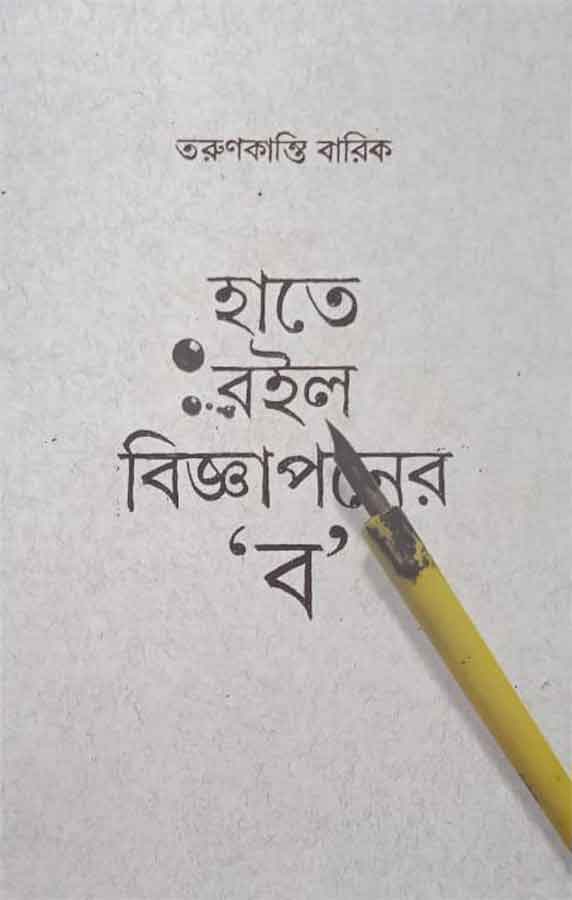 তরুণকান্তি বারিক
হাতে
রইল
বিজ্ঞাপনের
‘ব’